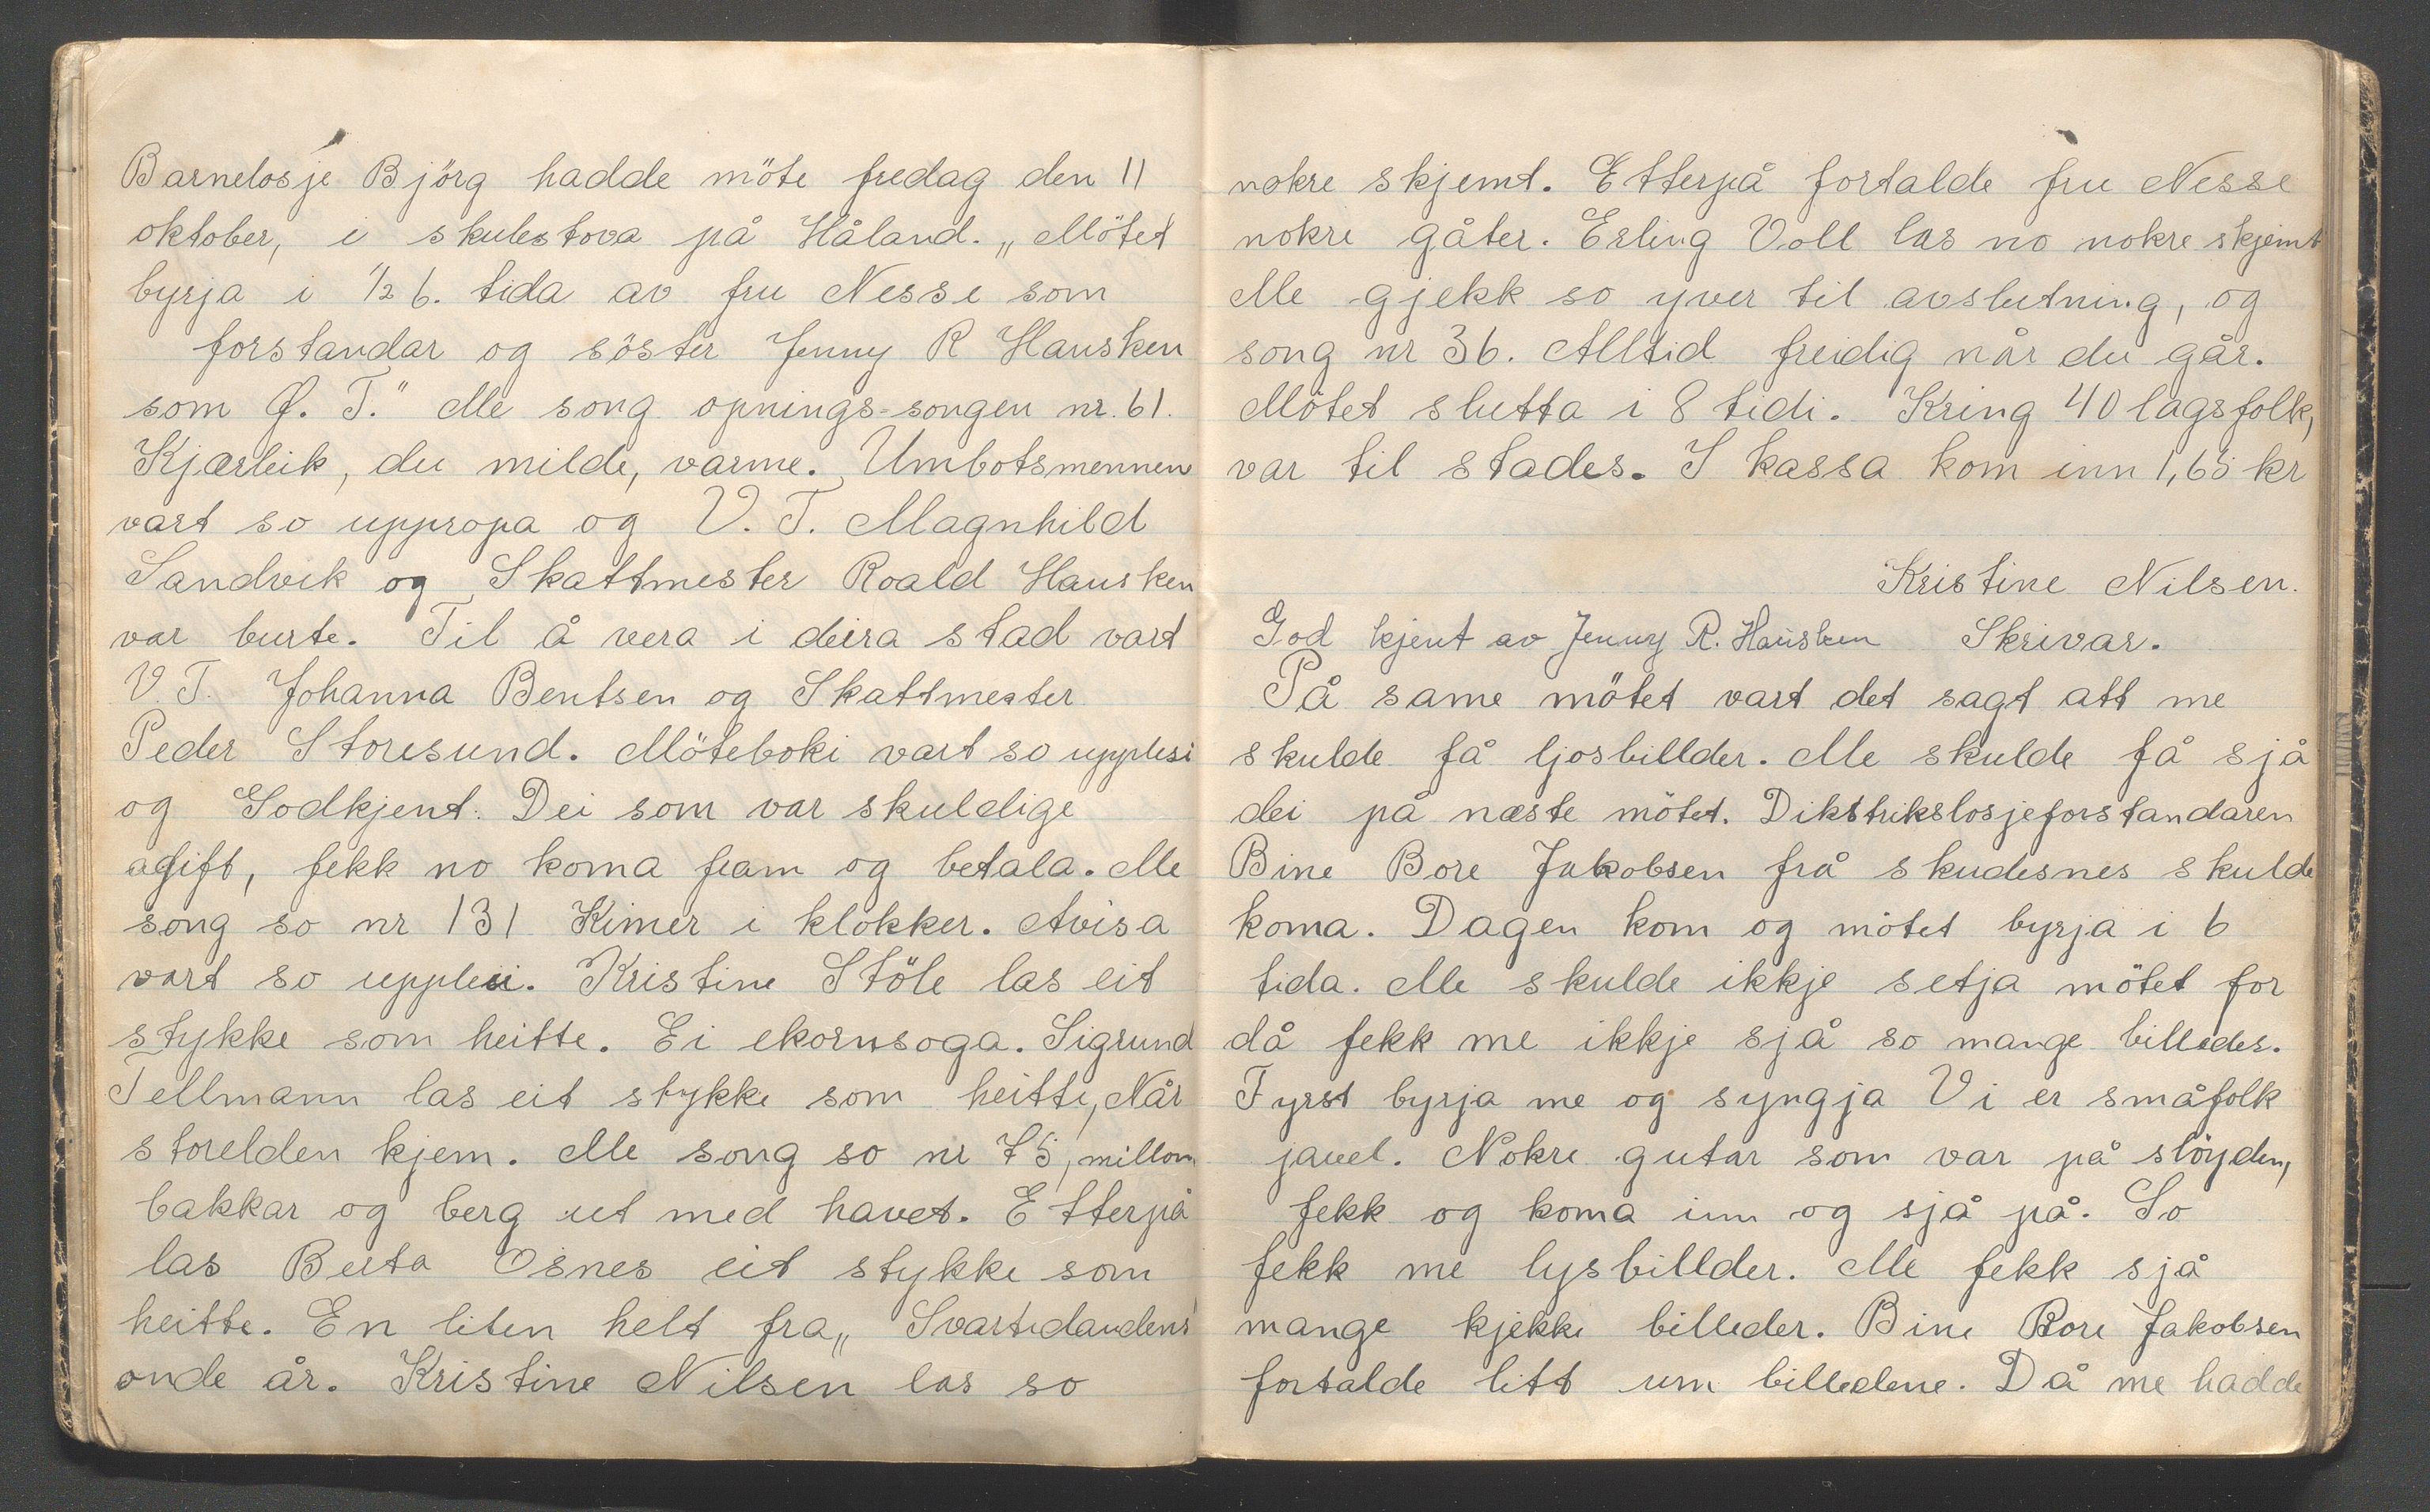 Barnelosje Björg hadde möte fredag den 11
oktober, i skulestova på Håland. „Mötet
byrja i ½ 6. tida av fru Nesse som
forstandar og söster Jenny R Hausken
som Ø. T." Me song opnings-songen nr. 61.
Kjærleik, du milde, varme. Umbotsmennen
vart so uppropa og V. T. Magnhild
Sandvik og Skattmester Roald Hausken
var burte. Til å vera i deira stad vart
V. T. Johanna Bentsen og Skattmester
Peder Storesund. Möteboki vart so upplesi
og Godkjent. Dei som var skuldige
agift, fekk no koma fram og betala. Me
song so nr 131 Kimer i klokker. Avisa
vart so upplesi. Kristine Stöle las eit
stykke som heitte. Ei ekornsoga. Sigrund
Tellmann las eit stykke som heitte, Når
storelden kjem. Me song so nr 75, millom
bakkar og berg ut med havet. Etterpå
las Berta Osnes eit stykke som
heitte. En liten helt fra „Svartedaudens"
onde år. Kristine Nilsen las so
nokre skjemt. Etterpå fortalde fru Nesse
nokre gåter. Erling Voll las no nokre skjemt
Me gjekk so yver til avslutning, og
song nr 36. Alltid freidig når du går.
Mötet slutta i 8 tidi. Kring 40 lagsfolk,
var til stades. I kassa kom inn 1,65 kr
Kristine Nilsen.
God kjent av Jenny R. Hausken Skrivar.
På same mötet vart det sagt att me
skulde få ljosbillder. Me skulde få sjå
dei på næste mötet. Dikstrikslosjeforstandaren
Bine Bore Jakobsen frå skudesnes skulde
koma. Dagen kom og mötet byrja i 6
tida. Me skulde ikkje setja mötet for
då fekk me ikkje sjå so mange billeder.
Fyrst byrja me og syngja Vi er småfolk
javel. Nokre gutar som var på slöyden,
fekk og koma inn og sjå på. So
fekk me lysbillder. Me fekk sjå
mange kjekke billeder. Bine Bore Jakobsen
fortalde litt um billedene. Då me hadde